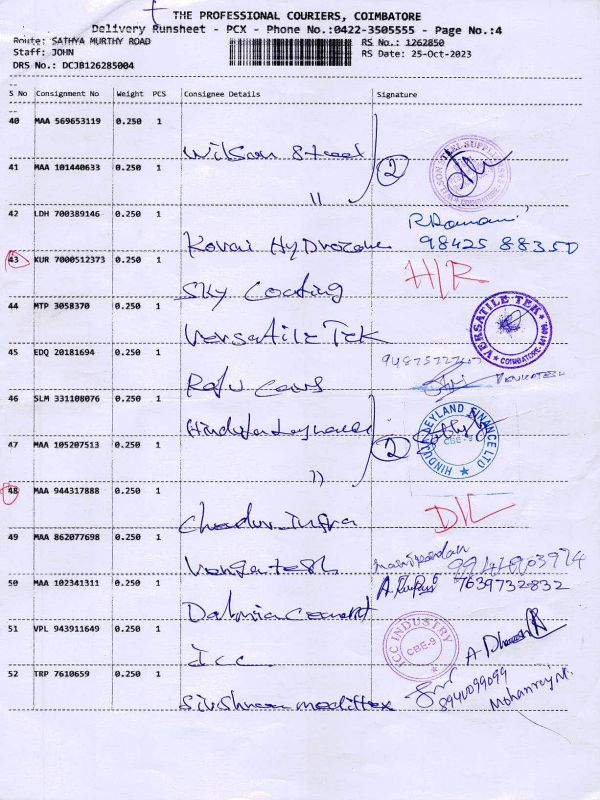 THE PROFESSIONAL COURIERS, COIMBATORE
Delivery Runsheet - PCX - Phone No.:0422-3505555 - Page No.:4
Route: SATHYA MURTHY ROAD RS No.: 1262850
Staff: JOHN RS Date: 25-Oct-2023
DRS No.: DCJB126285004
S No Consignment No Weight PCS Consignee Details Signature
40 MAA 569653119 0.250 1
Wilson Steel 2 WILSON STEEL SUPPLIERS
41 MAA 101440633 0.250 1
"
42 LDH 700389146 0.250 1 R Ramani
Kovai Hydrozone 98425 88350
43 KUR 7000512373 0.250 1 H/R
Sky Coating
44 MTP 3058370 0.250 1
Versatile Tek VERSATILE TEK COIMBATORE
45 EDQ 20181694 0.250 1
Raju Cars VENKATESH
46 SLM 331108076 0.250 1
Hinduja Leyland 2 HINDUJA LEYLAND FINANCE LTD CBE-9
47 MAA 105207513 0.250 1
"
48 MAA 944317888 0.250 1 D/L
Infra
49 MAA 862077698 0.250 1
Vengatesh Manikandan
50 MAA 102341311 0.250 1 7639732832
Dalmia Cement
51 VPL 943911649 0.250 1 JCC INDUSTRY CBE-9
JCC
52 TRP 7610659 0.250 1 8940099099
Mohanraj